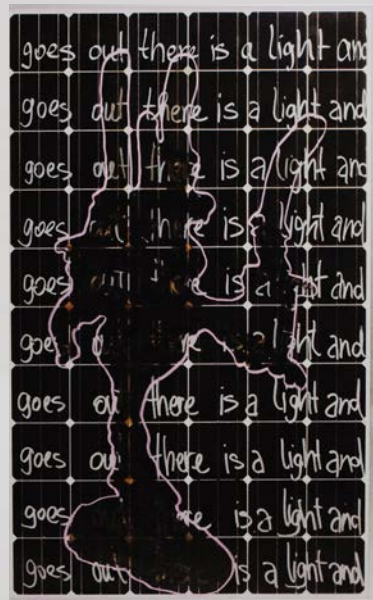 goes out there is a light and
goes out there is a light and
goes out there is a light and
goes is a light and
goes is a and
goes a light and
goes out there is a light and
goes out there is a light and
goes is a light and
goes out is a light and